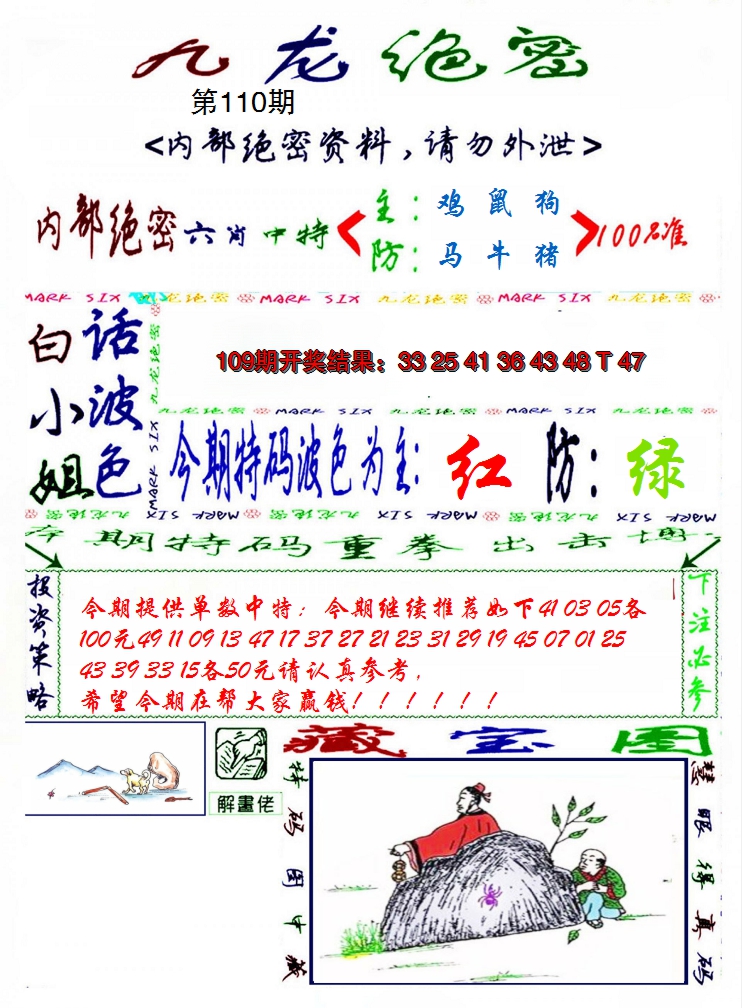 九龙绝密
第110期
<内部绝密资料,请勿外泄>
内部绝密六肖中特
主:鸡 鼠 狗
防:马 牛 猪
100%准
MARK SIX 九龙绝密 MARK SIX 九龙绝密 MARK SIX 九龙绝密
白小姐
话波色
九龙绝密
MARK SIX
109期开奖结果:33 25 41 36 43 48 T 47
九龙绝密 MARK SIX 九龙绝密 MARK SIX 九龙绝密
今期特码波色为主:红 防:绿
MARK SIX 九龙绝密 MARK SIX 九龙绝密 MARK SIX
本期特码重拳出击博
投资策略
今期提供单数中特;今期继续推荐如下41 03 05各
100元49 11 09 13 47 17 37 27 21 23 31 29 19 45 07 01 25
43 39 33 15各50元请认真参考,
希望今期在帮大家赢钱!!!!!!
下注必参
解畫佬
藏宝图
特码图中藏
慧眼得真码